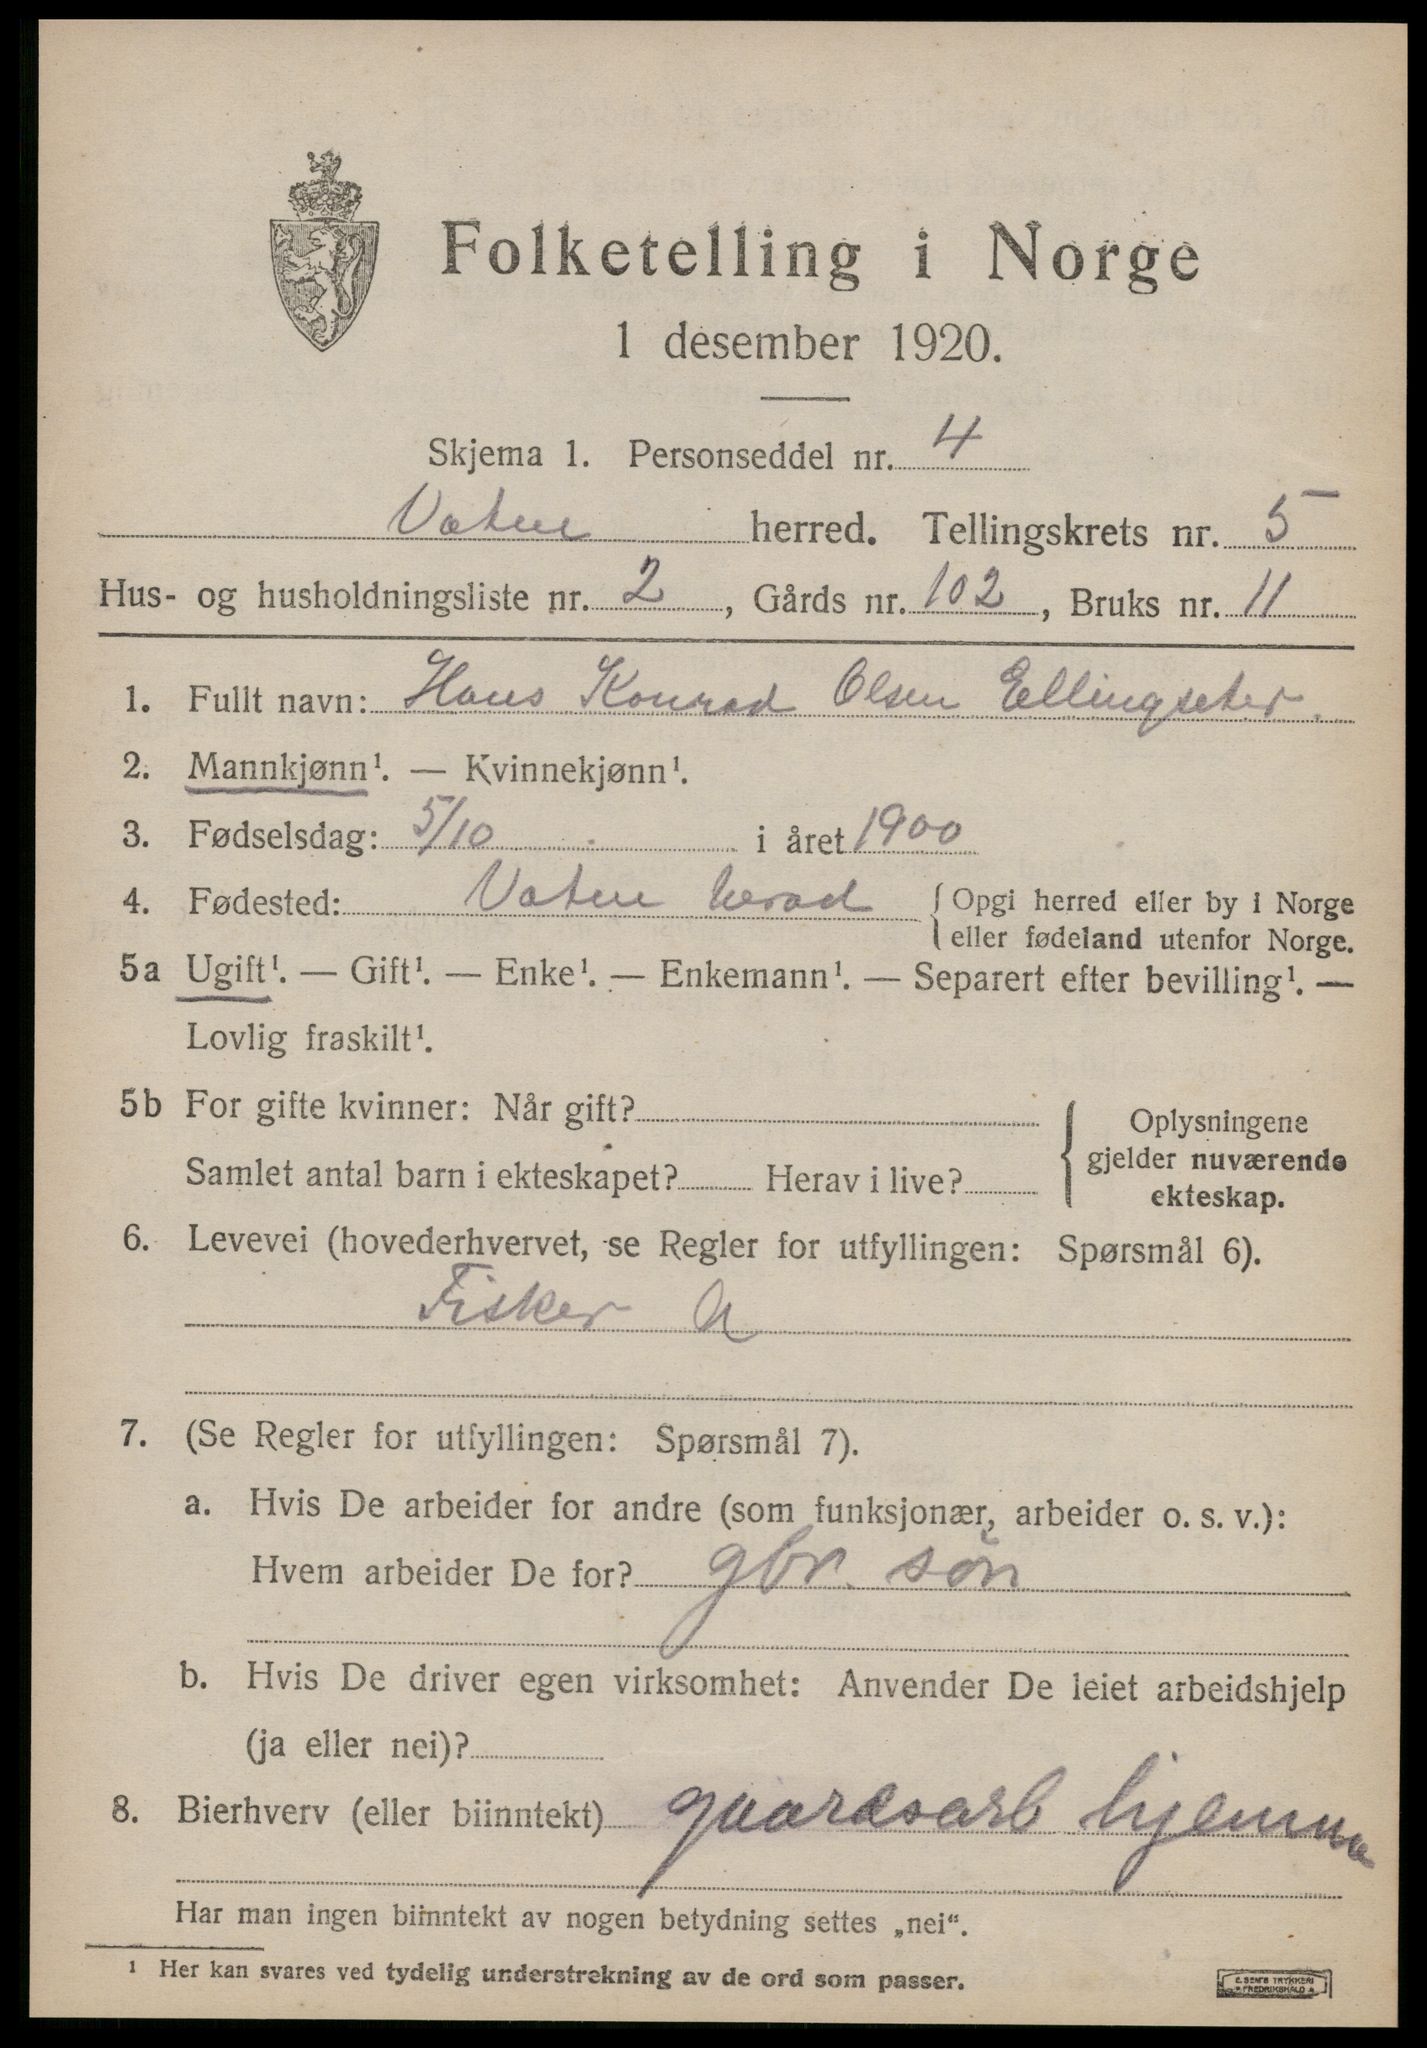 Folketelling i Norge
1 desember 1920.
Skjema 1. Personseddel nr. 4
Vatne herred. Tellingskrets nr. 5
Hus- og husholdningsliste nr. 2, Gårds nr. 102, Bruks nr. 11
1. Fullt navn: Hans Konrad Olsen Ellingseter.
2. Mannkjønn¹. — Kvinnekjønn¹.
3. Fødselsdag: 5/10 i året 1900
4. Fødested: Vatne herad {Opgi herred eller by i Norge
eller fødeland utenfor Norge.
5a Ugift¹. — Gift¹. — Enke¹. — Enkemann¹. — Separert efter bevilling¹. —
Lovlig fraskilt¹.
5b For gifte kvinner: Når gift?
Samlet antal barn i ekteskapet? Herav i live?
{Oplysningene
gjelder nuværende
ekteskap.
6. Levevei (hovederhvervet, se Regler for utfyllingen: Spørsmål 6).
Fisker U
7. (Se Regler for utfyllingen: Spørsmål 7).
a. Hvis De arbeider for andre (som funksjonær, arbeider o. s. v.):
Hvem arbeider De for? gbr. søn
b. Hvis De driver egen virksomhet: Anvender De leiet arbeidshjelp
(ja eller nei)?
8. Bierhverv (eller biinntekt) gaardsarb hjemme
Har man ingen biinntekt av nogen betydning settes „nei“.
¹ Her kan svares ved tydelig understrekning av de ord som passer.
E. SEM'S TRYKKERI
FREDRIKSHALD